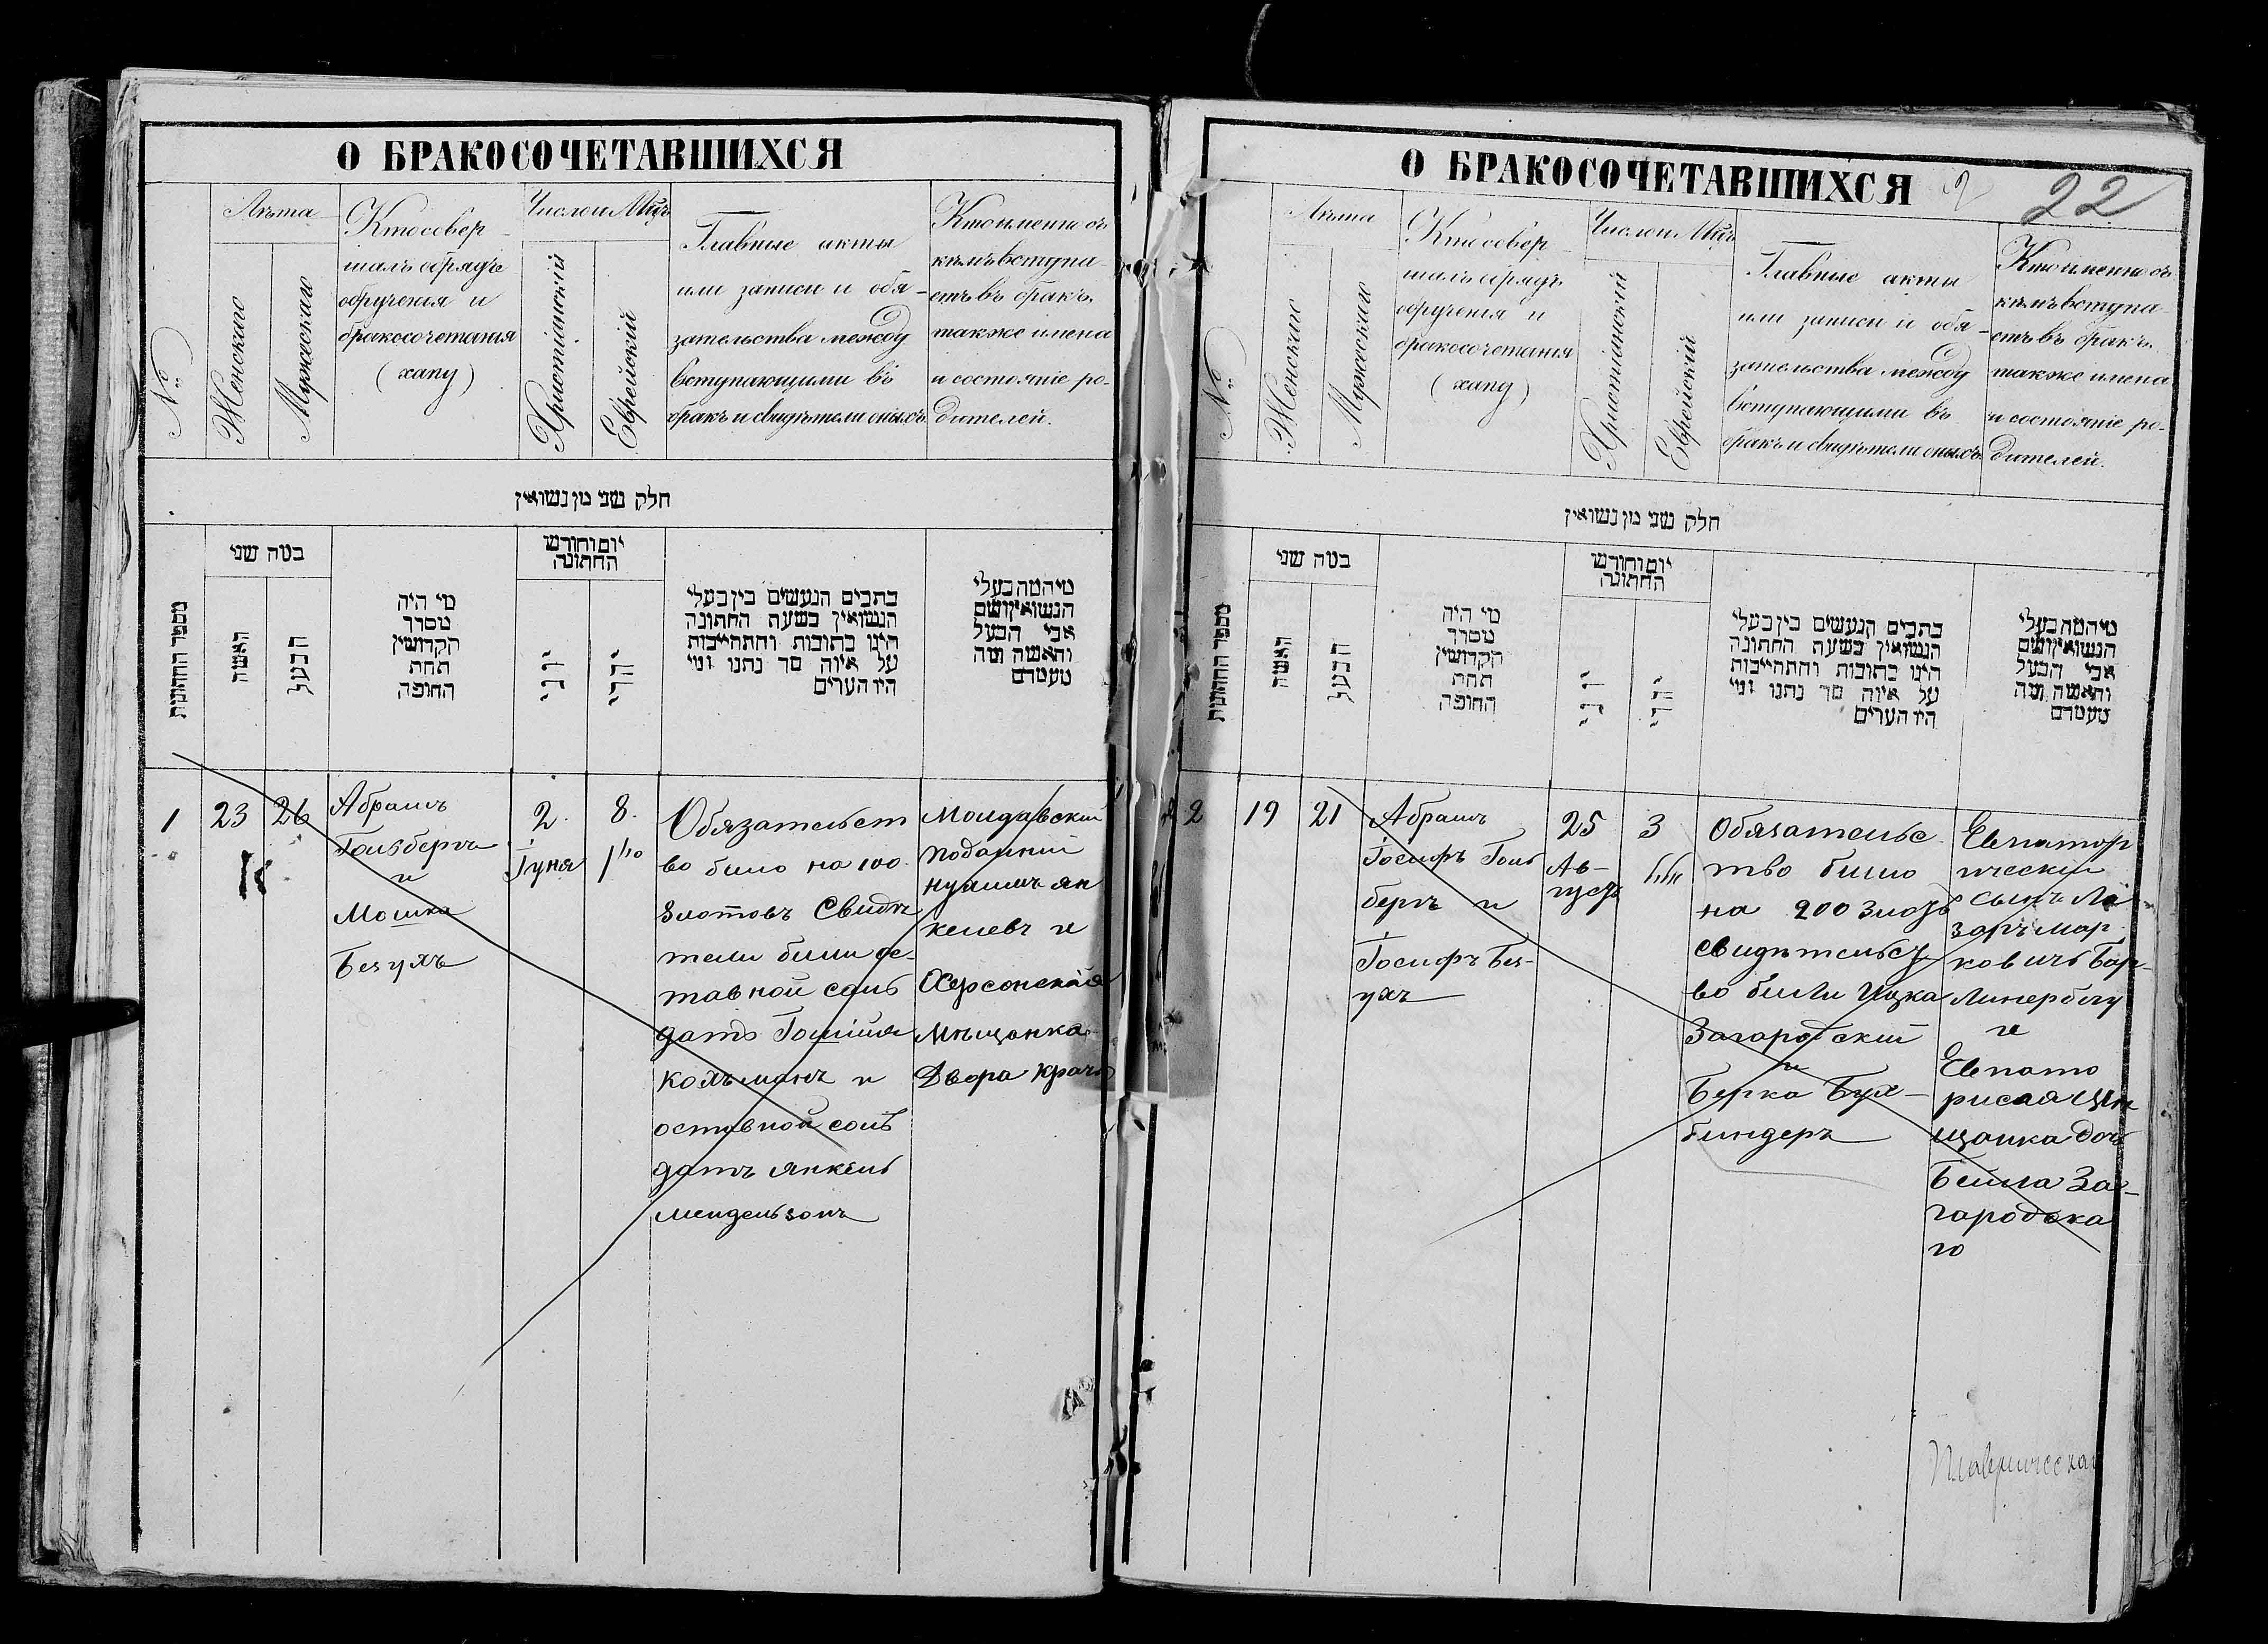 О БРАКОСОЧЕТАВШИХСЯ
№
Лѣта
Женскаго
Мужескаго
Кто совер-
шалъ обрядъ
обрученія и
бракосочетанія
(хапу)
Число и Мѣц
Христіанскій
Еврейскій
Главные акты
или записи и обя-
зательства между
вступающими въ
бракъ и свидѣтели оныхъ
Кто именно съ
кѣмъ вступа-
етъ въ бракъ.
также имена
и состояніе ро-
дителей.
חלק שני מן נשואין
מספר החתונות
כמה שני
האשה
הבעל
מי היה
מסדר
הקדושין
תחת
החופה
יום וחודש
החתונה
יוני
יהודי
כתבים הנעשים בין בעלי
הנשואין בשעת החתונה
היינו כתובות והתחייבות
על איזה סך נתנו ומי
היו העדים
מי המה בעלי
הנשואין ושם
אבי הבעל
והאשה ומה
מעמדם
1
23
26
К
Абрамъ
Гольбергъ
и
Мошка
Безухъ
2
Іуня
8
Обязательст
во било на 100
Злотовъ Свидѣ
тели били ос-
тавной соль
датъ
Кольманъ и
оставной соль
датъ Янкель
Мендельзонъ
Молдавскій
подданній
Янкелевъ и
Херсонская
Мѣщанка
Двора
О БРАКОСОЧЕТАВШИХСЯ
2
22
№
Лѣта
Женскаго
Мужескаго
Кто совер-
шалъ обрядъ
обрученія и
бракосочетанія
(хапу)
Число и Мѣц
Христіанскій
Еврейскій
Главные акты
или записи и обя-
зательства между
вступающими въ
бракъ и свидѣтели оныхъ
Кто именно съ
кѣмъ вступа-
етъ въ бракъ.
также имена
и состояніе ро-
дителей.
חלק שני מן נשואין
מספר החתונות
כמה שני
האשה
הבעל
מי היה
מסדר
הקדושין
תחת
החופה
יום וחודש
החתונה
יוני
יהודי
כתבים הנעשים בין בעלי
הנשואין בשעת החתונה
היינו כתובות והתחייבות
על איזה סך נתנו ומי
היו העדים
מי המה בעלי
הנשואין ושם
אבי הבעל
והאשה ומה
מעמדם
2
19
21
Абрамъ
Іосифъ Голь
бергъ и
Іосифъ Без-
ухъ
25
Ав-
густъ
3
אלול
Обязательс
тво било
на 200 Злотъ
свидѣтельст
во били Ицка
Загародскій
и
Берка Бух-
биндеръ
Евпатор
ическій
сынъ Ла
заръ Мар
ковичъ
и
Евпато
щанка дочь
Бейла За-
городска
го
Таврическая